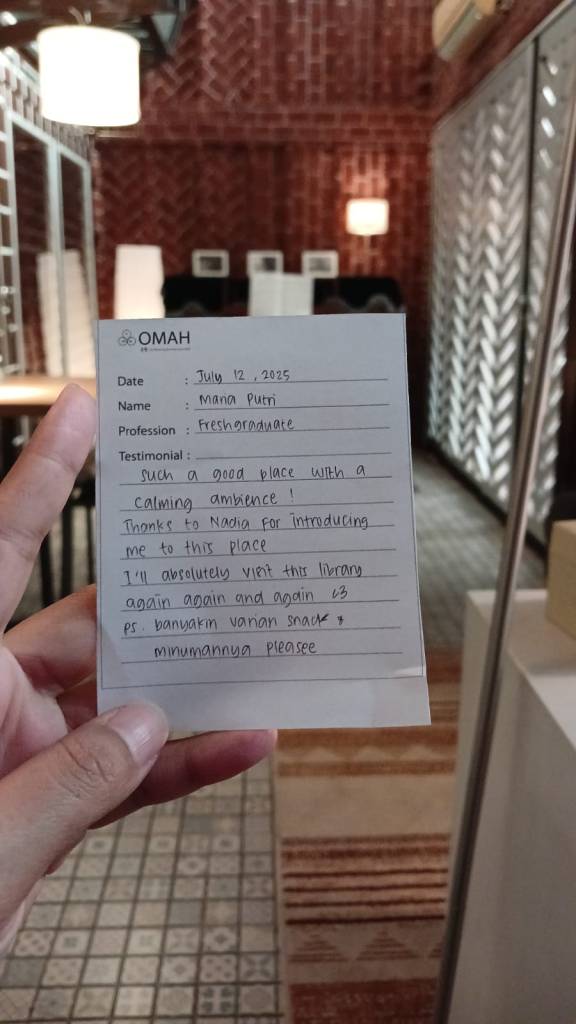 OMAH
Date : July 12, 2025
Name : Maria Putri
Profession : Freshgraduate
Testimonial :
such a good place with a
calming ambience !
Thanks to Nadia for introducing
me to this place
I'll absolutely visit this library
again again and again <3
ps. banyakin varian snack &
minumannya pleasee